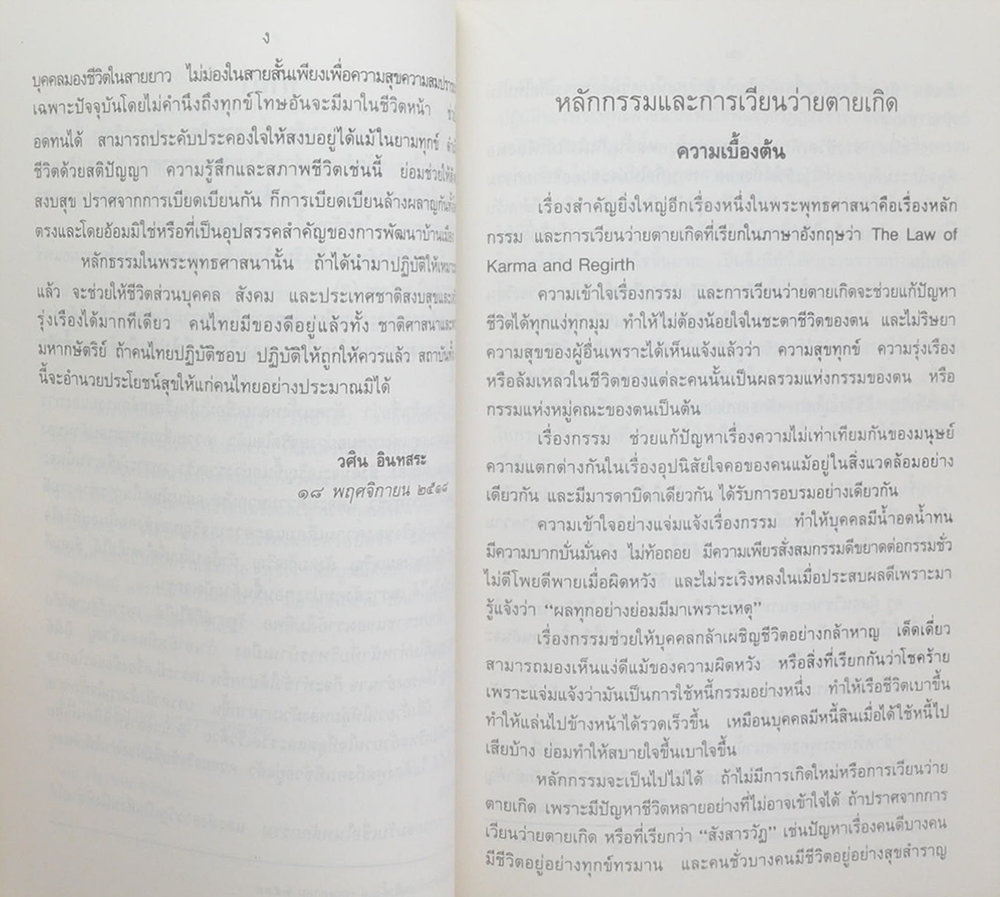 ง
บุคคลมองชีวิตในสายยาว ไม่มองในสายสั้นเพียงเพื่อความสุขความสมปรารถ
เฉพาะปัจจุบันโดยไม่คำนึงถึงทุกข์โทษอันจะมีมาในชีวิตหน้า
อดทนได้ สามารถประคับประคองใจให้สงบอยู่ได้แม้ในยามทุกข์
ชีวิตด้วยสติปัญญา ความรู้สึกและสภาพชีวิตเช่นนี้ ย่อมช่วยให้
สงบสุข ปราศจากการเบียดเบียนกัน ก็การเบียดเบียนล้างผลาญกัน
ตรงและโดยอ้อมมิใช่หรือที่เป็นอุปสรรคสำคัญของการพัฒนาบ้านเมือง
หลักธรรมในพระพุทธศาสนานั้น ถ้าได้นำมาปฏิบัติให้เหมาะ
แล้ว จะช่วยให้ชีวิตส่วนบุคคล สังคม และประเทศชาติสงบสุขและ
รุ่งเรืองได้มากทีเดียว คนไทยมีของดีอยู่แล้วทั้ง ชาติศาสนาและ
มหากษัตริย์ ถ้าคนไทยปฏิบัติชอบ ปฏิบัติให้ถูกให้ควรแล้ว สถาบัน
นี้จะอำนวยประโยชน์สุขให้แก่คนไทยอย่างประมาณมิได้
วศิน อินทสระ
๑๘ พฤศจิกายน ๒๕๑๘
หลักกรรมและการเวียนว่ายตายเกิด
ความเบื้องต้น
เรื่องสำคัญยิ่งใหญ่อีกเรื่องหนึ่งในพระพุทธศาสนาคือเรื่องหลัก
กรรม และการเวียนว่ายตายเกิดที่เรียกในภาษาอังกฤษว่า The Law of
Karma and Regirth
ความเข้าใจเรื่องกรรม และการเวียนว่ายตายเกิดจะช่วยแก้ปัญหา
ชีวิตได้ทุกแง่ทุกมุม ทำให้ไม่ต้องน้อยใจในชะตาชีวิตของตน และไม่ริษยา
ความสุขของผู้อื่นเพราะได้เห็นแจ้งแล้วว่า ความสุขทุกข์ ความรุ่งเรือง
หรือล้มเหลวในชีวิตของแต่ละคนนั้นเป็นผลรวมแห่งกรรมของตน หรือ
กรรมแห่งหมู่คณะของตนเป็นต้น
เรื่องกรรม ช่วยแก้ปัญหาเรื่องความไม่เท่าเทียมกันของมนุษย์
ความแตกต่างกันในเรื่องอุปนิสัยใจคอของคนแม้อยู่ในสิ่งแวดล้อมอย่าง
เดียวกัน และมีมารดาบิดาเดียวกัน ได้รับการอบรมอย่างเดียวกัน
ความเข้าใจอย่างแจ่มแจ้งเรื่องกรรม ทำให้บุคคลมีน้ำอดน้ำทน
มีความบากบั่นมั่นคง ไม่ท้อถอย มีความเพียรสั่งสมกรรมดีขยาดต่อกรรมชั่ว
ไม่ตีโพยตีพายเมื่อผิดหวัง และไม่ระเริงหลงในเมื่อประสบผลดีเพราะมา
รู้แจ้งว่า “ผลทุกอย่างย่อมมีมาเพราะเหตุ”
เรื่องกรรมช่วยให้บุคคลกล้าเผชิญชีวิตอย่างกล้าหาญ เด็ดเดี่ยว
สามารถมองเห็นแง่ดีแม้ของความผิดหวัง หรือสิ่งที่เรียกกันว่าโชคร้าย
เพราะแจ่มแจ้งว่ามันเป็นการใช้หนี้กรรมอย่างหนึ่ง ทำให้เรือชีวิตเบาขึ้น
ทำให้แล่นไปข้างหน้าได้รวดเร็วขึ้น เหมือนบุคคลมีหนี้สินเมื่อได้ใช้หนี้ไป
เสียบ้าง ย่อมทำให้สบายใจขึ้นเบาใจขึ้น
หลักกรรมจะเป็นไปไม่ได้ ถ้าไม่มีการเกิดใหม่หรือการเวียนว่าย
ตายเกิด เพราะมีปัญหาชีวิตหลายอย่างที่ไม่อาจเข้าใจได้ ถ้าปราศจากการ
เวียนว่ายตายเกิด หรือที่เรียกว่า “สังสารวัฏ” เช่นปัญหาเรื่องคนดีบางคน
มีชีวิตอยู่อย่างทุกข์ทรมาน และคนชั่วบางคนมีชีวิตอยู่อย่างสุขสำราญ